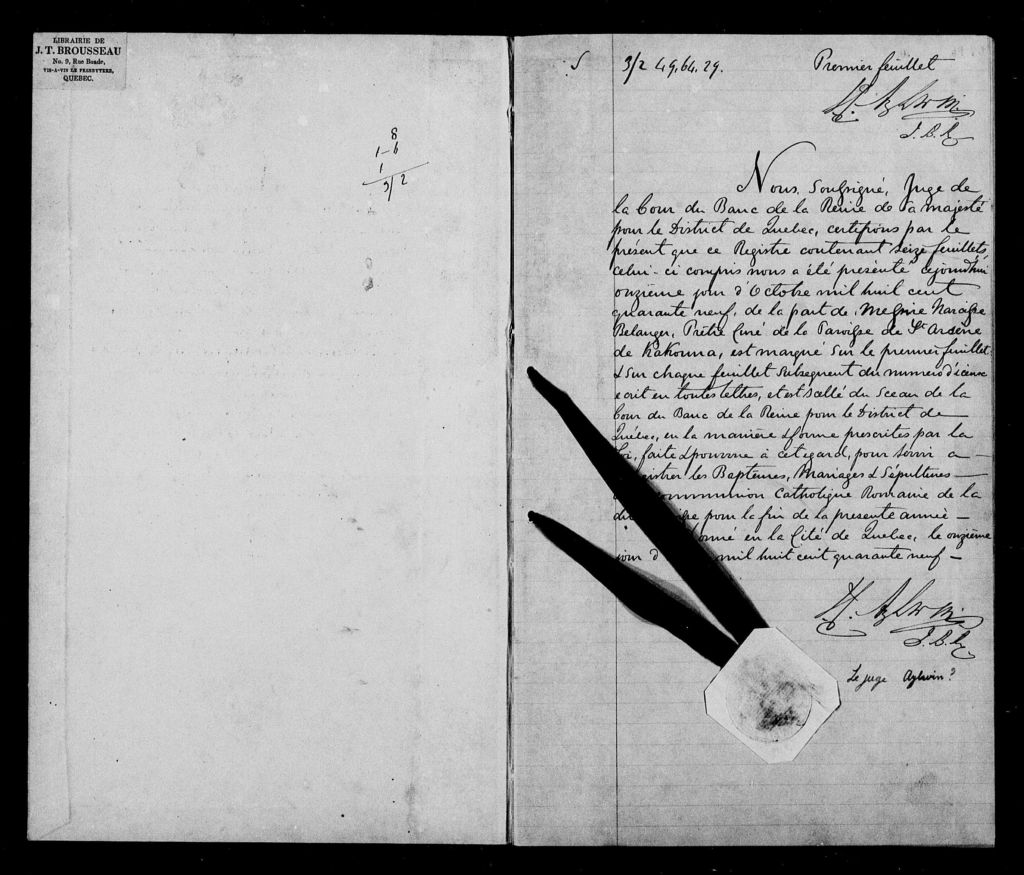 LIBRAIRIE DE
J. T. BROUSSEAU
No. 9, Rue Buade,
VIS-A-VIS LE PRESBYTERE,
QUEBEC.
8
1-6
1
3/2
S 3/2 49.64.29. Premier feuillet
J.B.R.
Nous, Soussigné, Juge de
la Cour du Banc de la Reine de Sa majesté
pour le District de Quebec, certifions par le
présent que ce Registre contenant seize feuillets,
celui-ci compris nous a été présenté cejourd'hui
onzième jour d'Octobre mil huit cent
quarante neuf, de la part de Messire Narcisse
Belanger, Prêtre Curé de la Paroisse de St Arsène
de Kakouna, est marqué sur le premier feuillet
& sur chaque feuillet subsequent du numero
ecrit en toutes lettres, et est scellé du Sceau de la
Cour du Banc de la Reine pour le District de
Québec, en la manière & forme prescrites par la
Loi, faite & pourvue à cet egard, pour servir a
les Baptêmes, Mariages & Sépultures
Catholique Romaine de la
pour la fin de la presente année
en la Cité de Quebec, le onzième
jour mil huit cent quarante neuf
J.B.R.
Le juge Aylwin?